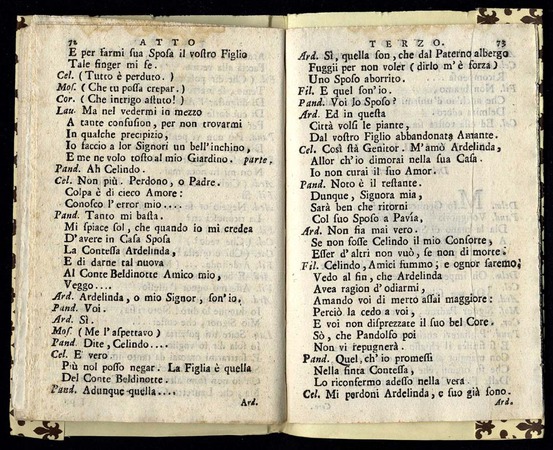 72 ATTO
E per farmi sua Sposa il vostro Figlio
Tale finger mi fe.
Cel. (Tutto è perduto.)
Mos. (Che tu possa crepar.)
Cor. (Che intrigo astuto!)
Lau. Ma nel vedermi in mezzo
A tante confusion, per non trovarmi
In qualche precipizio,
Io faccio a lor Signori un bell'inchino,
E me ne volo tosto al mio Giardino. parte.
Pand. Ah Celindo.
Cel. Non più. Perdono, o Padre.
Colpa è di cieco Amore:
Conosco l'error mio....
Pand. Tanto mi basta.
Mi spiace sol, che quando io mi credea
D'avere in Casa Sposa
La Contessa Ardelinda,
E di darne tal nuova
Al Conte Beldinotte Amico mio,
Veggo....
Ard. Ardelinda, o mio Signor, son'io.
Pand. Voi.
Ard. Sì.
Mos. (Me l'aspettavo)
Pand. Dite, Celindo....
Cel. E vero.
Più nol posso negar. La Figlia è quella
Del Conte Beldinotte.
Pand. Adunque quella....
Ard.
TERZO. 73
Ard. Sì, quella son, che dal Paterno albergo
Fuggii per non voler (dirlo m'è forza)
Uno Sposo aborrito.
Fil. E quel son'io.
Pand. Voi lo Sposo?
Ard. Ed in questa
Città volsi le piante,
Dal vostro Figlio abbandonata Amante.
Cel. Così stà Genitor. M'amò Ardelinda,
Allor ch'io dimorai nella sua Casa.
Io non curai il suo Amor.
Pand. Noto è il restante.
Dunque, Signora mia,
Sarà ben che ritorni
Col suo Sposo a Pavia,
Ard. Non fia mai vero.
Se non fosse Celindo il mio Consorte,
Esser d'altri non vuò, se non di morte.
Fil. Celindo, Amici fummo; e ognor saremo;
Vedo al fin, che Ardelinda
Avea ragion d'odiarmi,
Amando voi di merto assai maggiore:
Perciò la cedo a voi,
E voi non disprezzate il suo bel Core.
Sò, che Pandolfo poi
Non vi repugnerà.
Pand. Quel, ch'io promessi
Nella finta Contessa,
Lo riconfermo adesso nella vera.
Cel. Mi perdoni Ardelinda, e suo già sono.
Ard.